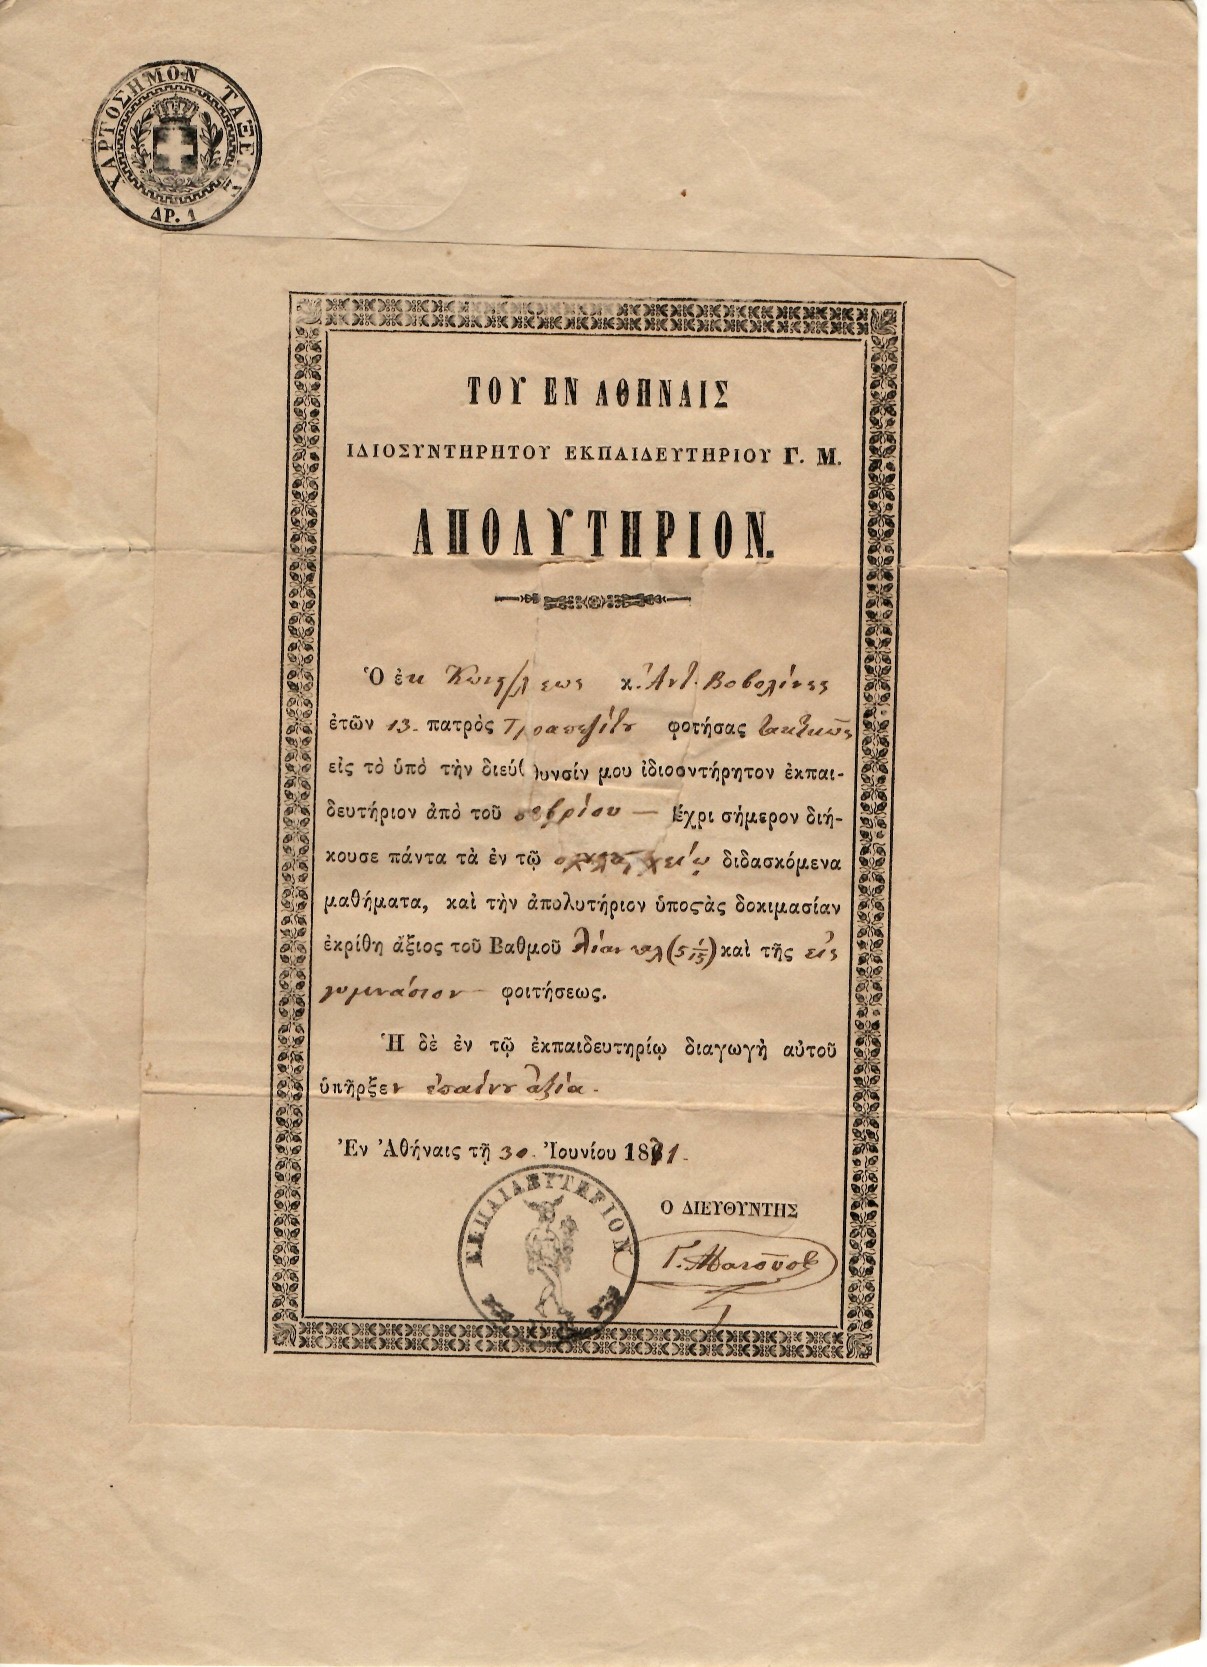 ΧΑΡΤΟΣΗΜΟΝ ΤΑΞΕΩΣ
ΔΡ. 1
ΤΟΥ ΕΝ ΑΘΗΝΑΙΣ
ΙΔΙΟΣΥΝΤΗΡΗΤΟΥ ΕΚΠΑΙΔΕΥΤΗΡΙΟΥ Γ. Μ.
ΑΠΟΛΥΤΗΡΙΟΝ.
Ὁ ἐκ κ. Ἀντ. Βοβολίνης
ἐτῶν 13. πατρὸς Τραπεζίτου φοτήσας τακτικῶς
εἰς τὸ ὑπὸ τὴν διεύθυνσίν μου ἰδιοσντήρητον ἐκπαι-
δευτήριον ἀπὸ τοῦ — ἔχρι σήμερον διή-
κουσε πάντα τὰ ἐν τῷ διδασκόμενα
μαθήματα, καὶ τὴν ἀπολυτήριον ὑποςὰς δοκιμασίαν
ἐκρίθη ἄξιος τοῦ Βαθμοῦ λίαν καλ (5 1/15) καὶ τῆς εἰς
γυμνάσιον — φοιτήσεως.
Ἡ δὲ ἐν τῷ ἐκπαιδευτηρίῳ διαγωγὴ αὐτοῦ
ὑπῆρξεν ἐπαίνου ἀξία.
Ἐν Ἀθήναις τῇ 30. Ἰουνίου 1871.
Ο ΔΙΕΥΘΥΝΤΗΣ
ΕΚΠΑΙΔΕΥΤΗΡΙΟΝ